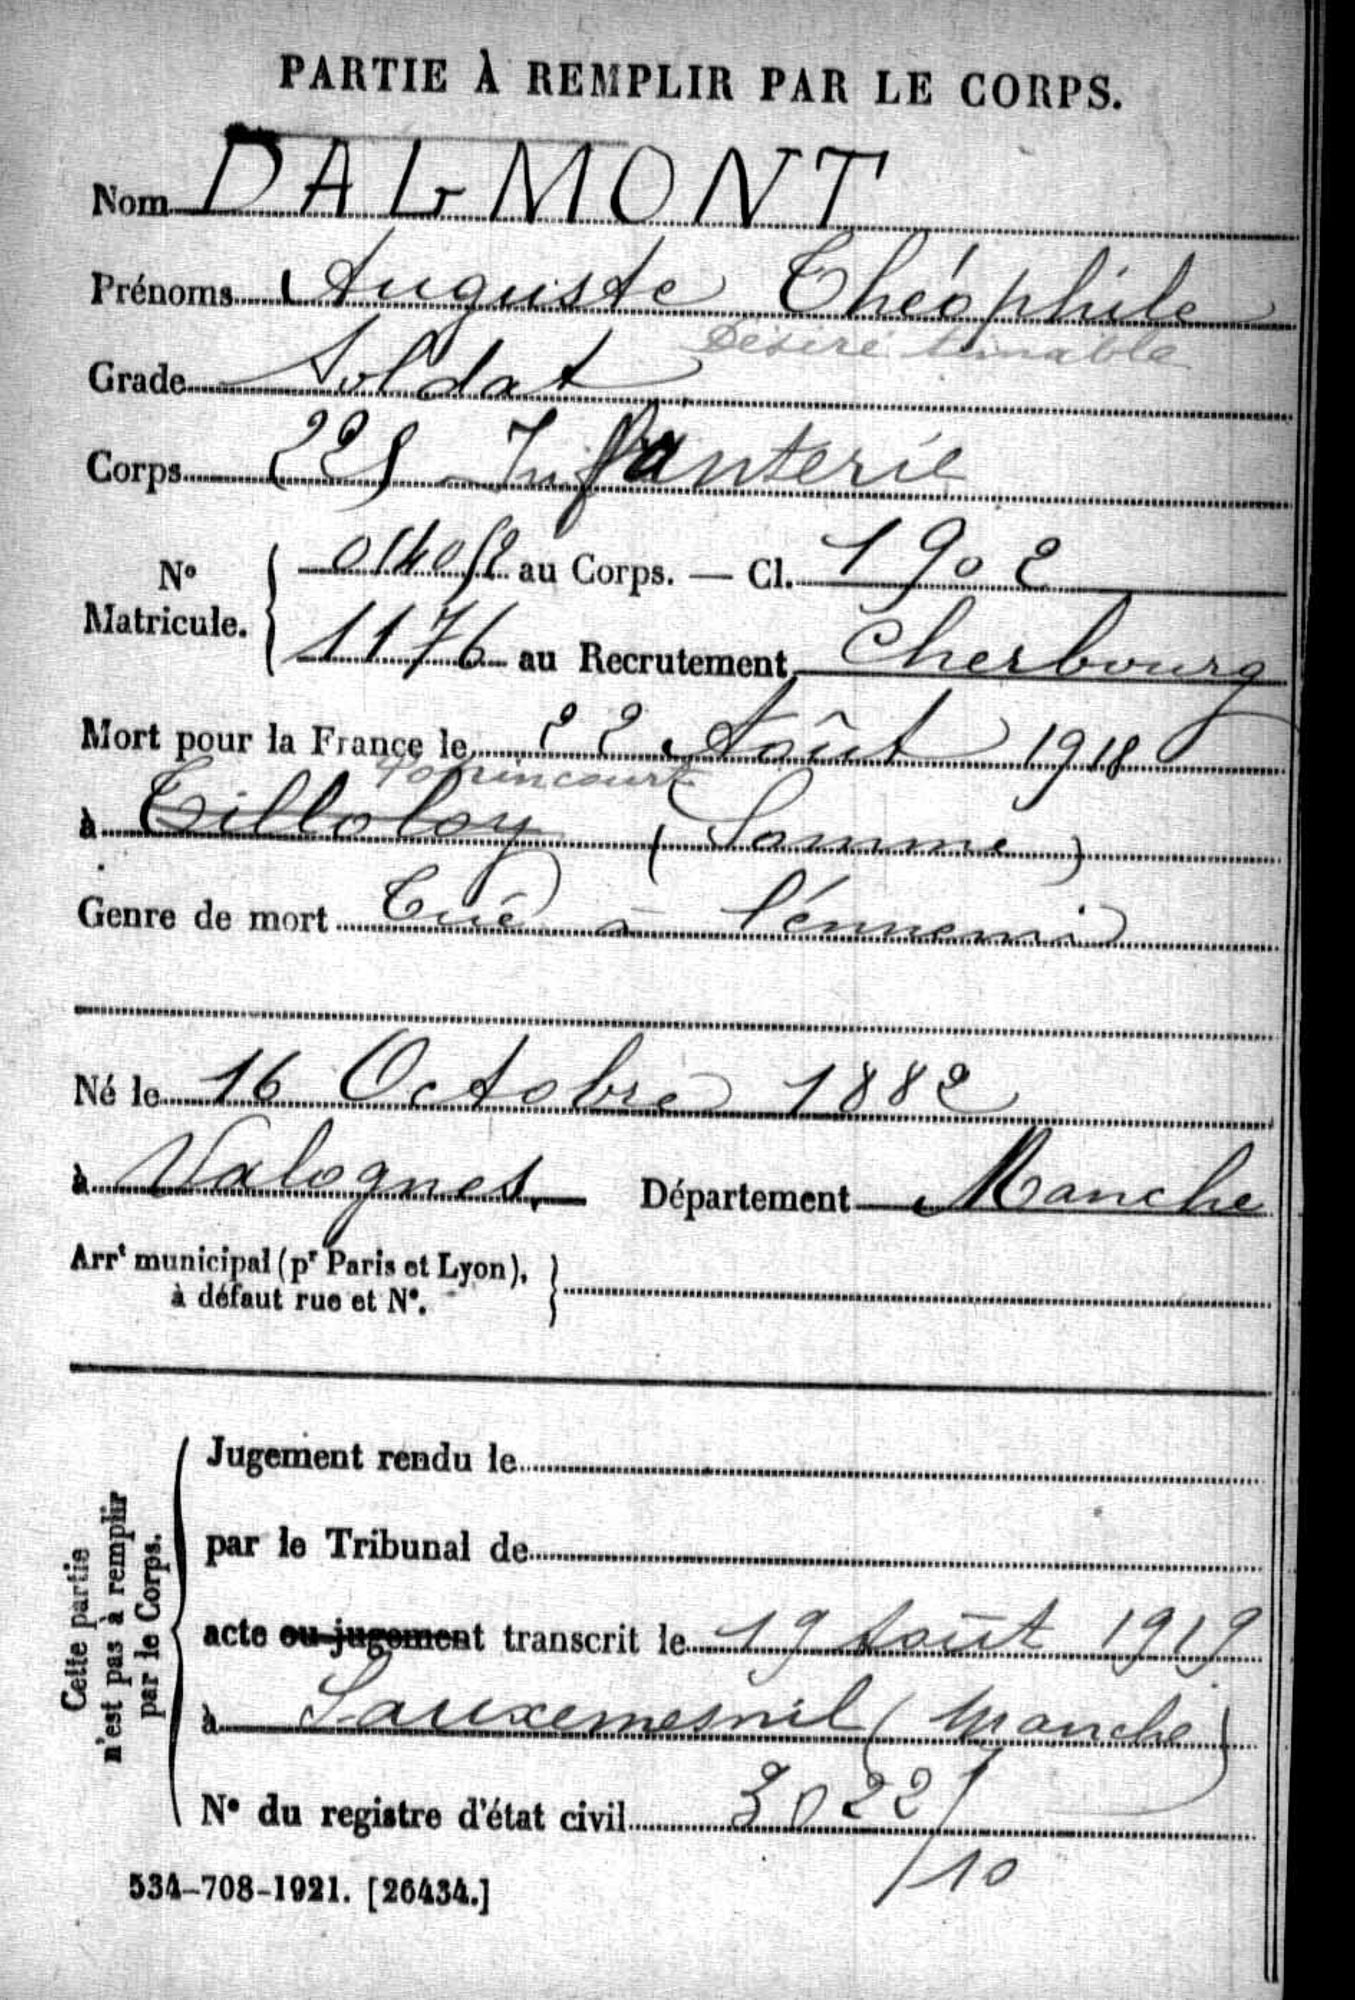 PARTIE À REMPLIR PAR LE CORPS.
Nom DALMONT
Prénoms Auguste Théophile
Désiré Aimable
Grade Soldat
Corps 225 Infanterie
N° Matricule. { 014052 au Corps. — Cl. 1902
1176 au Recrutement Cherbourg
Mort pour la France le 22 Août 1918
Popincourt
à Tilloloy (Somme)
Genre de mort Tué à l'énnemi
Né le 16 Octobre 1882
à Valognes. Département Manche
Arrt municipal (pr Paris et Lyon), }
à défaut rue et N°.
Cette partie n'est pas à remplir par le Corps.
Jugement rendu le
par le Tribunal de
acte ou jugement transcrit le 19 Août 1919
à Sauxemesnil (Manche)
N° du registre d'état civil 3022/10
534-708-1921. [26434.]